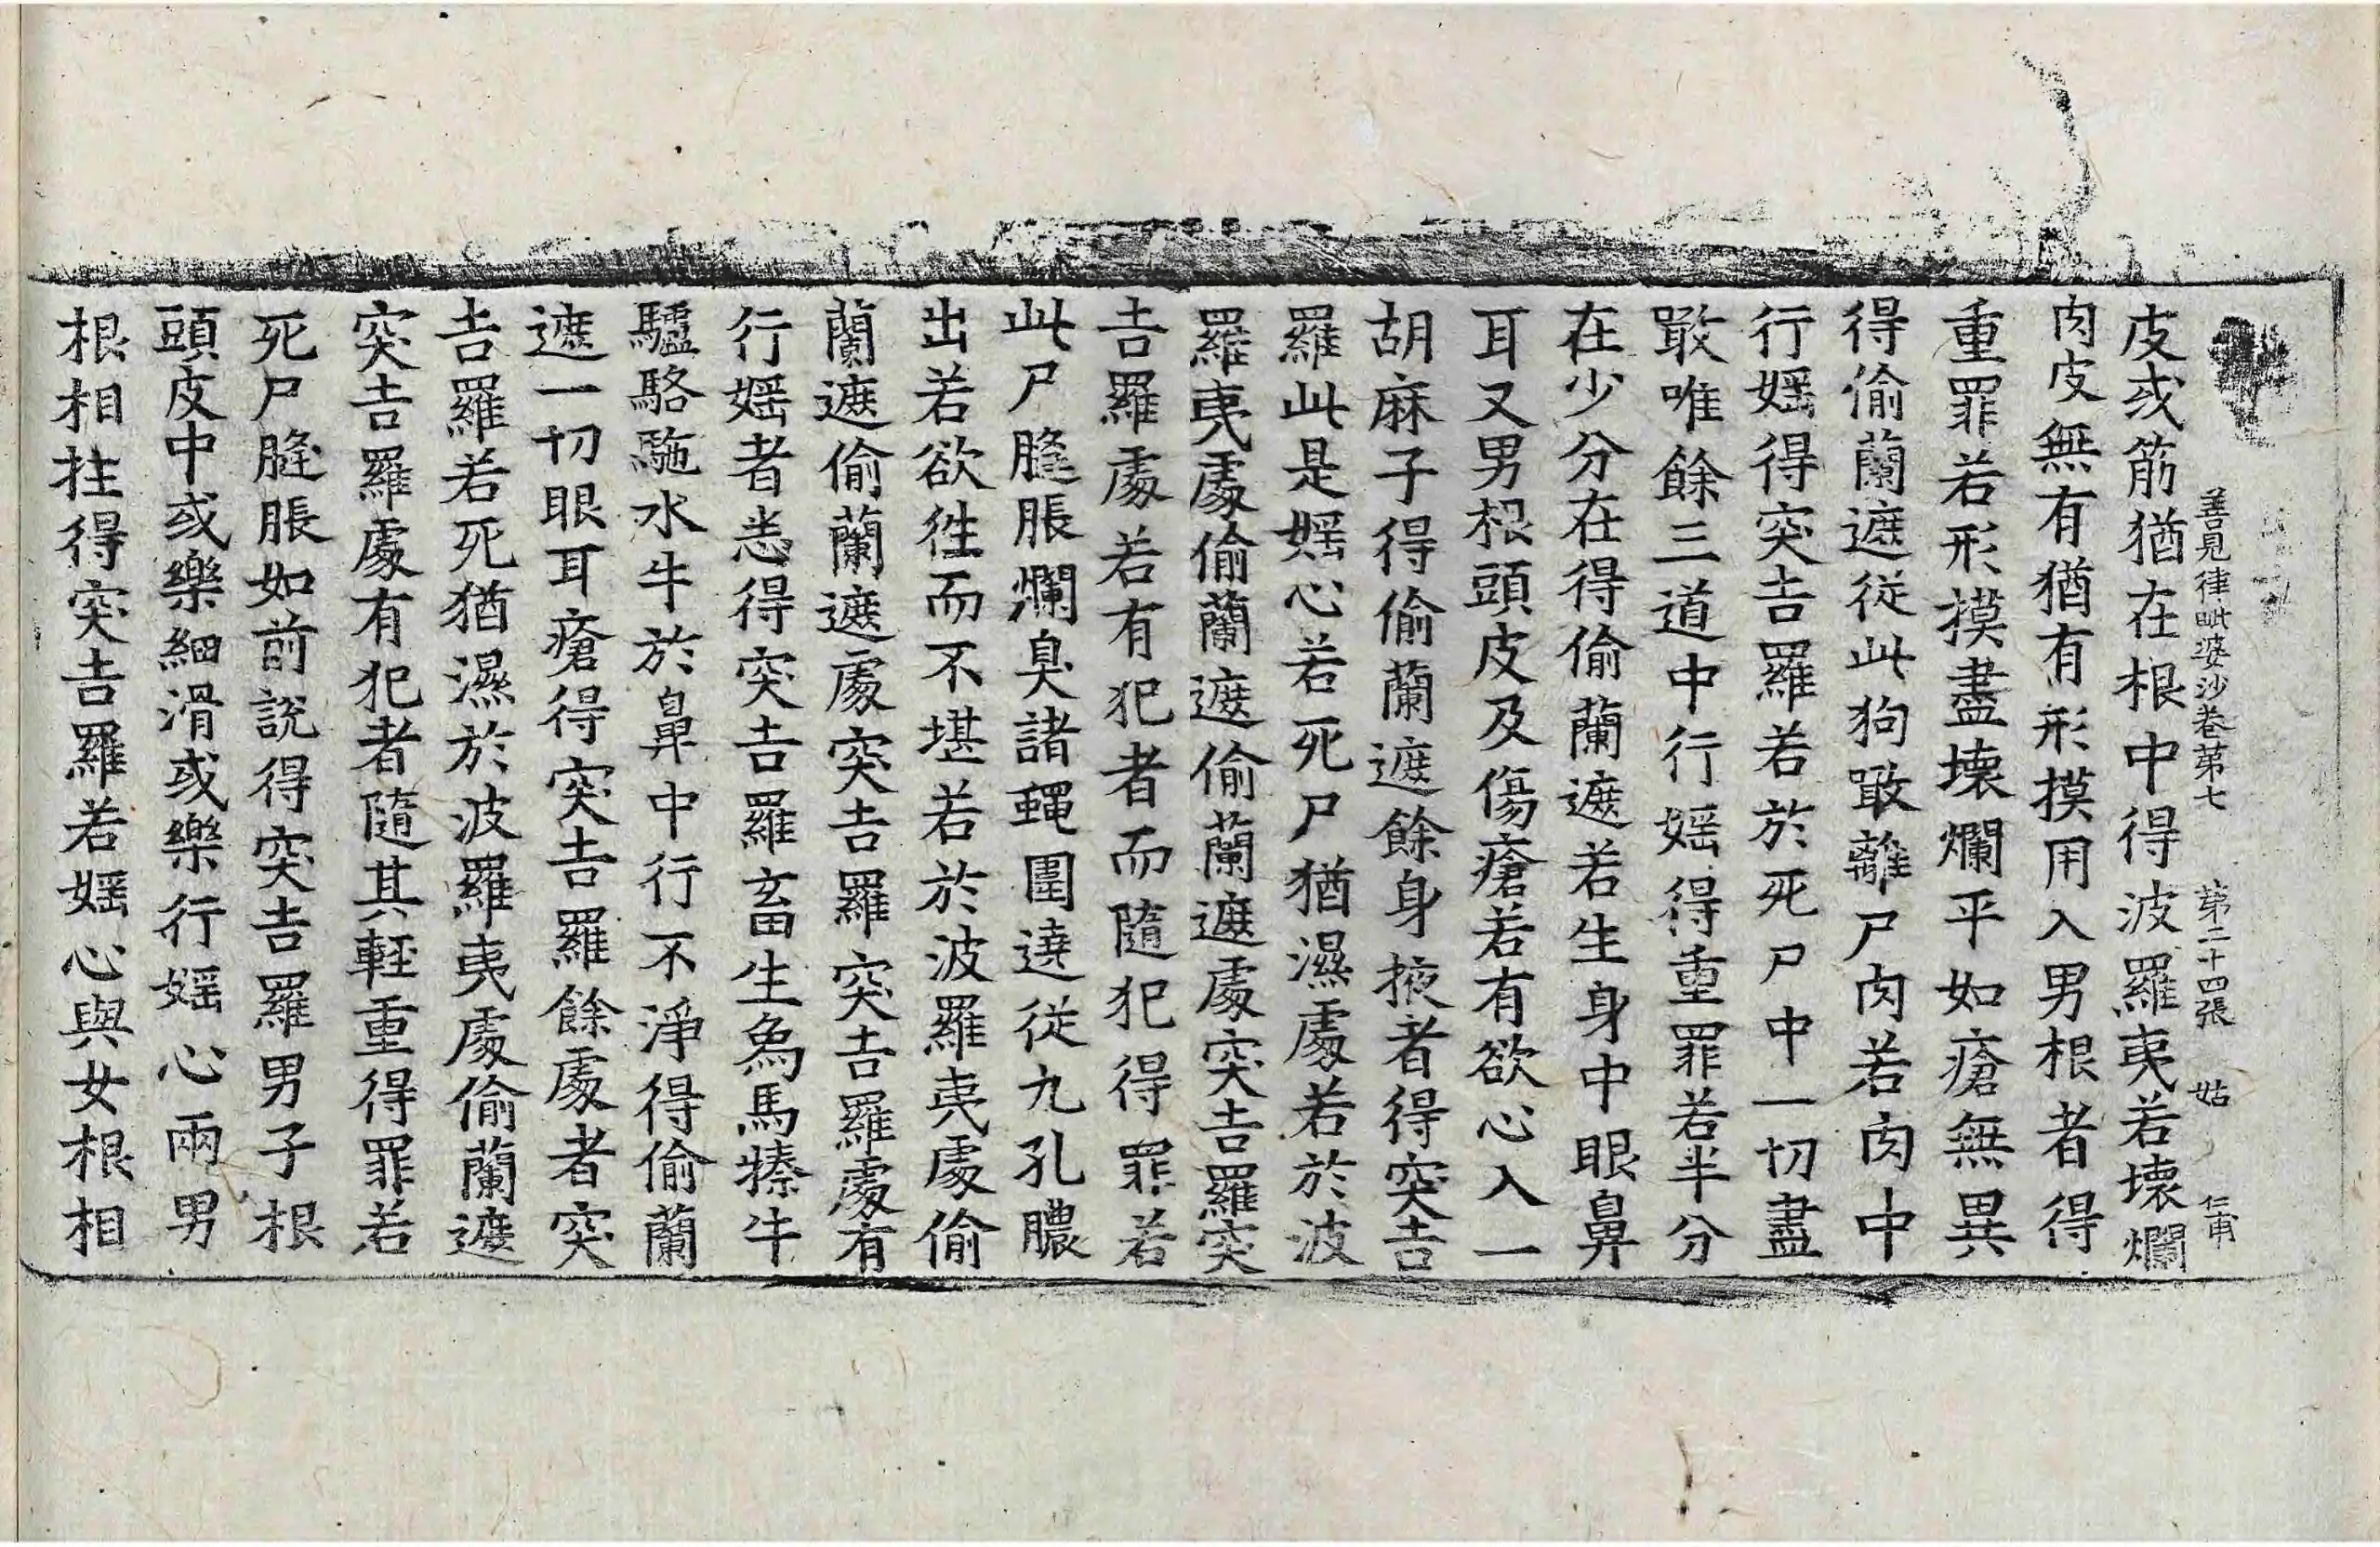 善見律毗婆沙卷第七 第二十四張 姑 仁甫
皮或筋猶在根中得波羅夷若壞爛
肉皮無有猶有形摸用入男根者得
重罪若形摸盡壞爛平如瘡無異
得偷蘭遮從此狗噉離尸肉若肉中
行婬得突吉羅若於死尸中一切盡
噉唯餘三道中行婬得重罪若半分
在少分在得偷蘭遮若生身中眼鼻
耳又男根頭皮及傷瘡若有欲心入一
胡麻子得偷蘭遮餘身掖者得突吉
羅此是婬心若死尸猶濕處若於波
羅夷處偷蘭遮偷蘭遮處突吉羅突
吉羅處若有犯者而隨犯得罪若
此尸膖脹爛臭諸蠅圍遶從九孔膿
出若欲往而不堪若於波羅夷處偷
蘭遮偷蘭遮處突吉羅突吉羅處有
行婬者悉得突吉羅畜生象馬㹀牛
驢駱駞水牛於鼻中行不淨得偷蘭
遮一切眼耳瘡得突吉羅餘處者突
吉羅若死猶濕於波羅夷處偷蘭遮
突吉羅處有犯者隨其輕重得罪若
死尸膖脹如前說得突吉羅男子根
頭皮中或樂細滑或樂行婬心兩男
根相拄得突吉羅若婬心與女根相